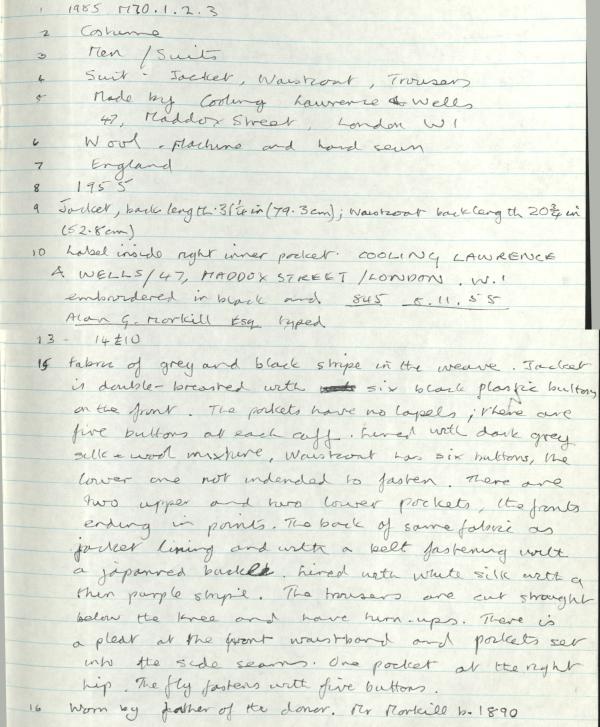 1 1985 M30.1.2.3
2 Costume
3 Men / Suits
4 Suit - Jacket, Waistcoat, Trousers
5 Made by Cooling Lawrence & Wells
47, Maddox Street, London W1
6 Wool. Machine and hand sewn
7 England
8 1955
9 Jacket, back length 31¼ in (79.3cm); Waistcoat back length 20¾ in
(52.8cm)
10 Label inside right inner pocket. COOLING LAWRENCE
& WELLS/47, MADDOX STREET/LONDON. W.1
embroidered in black and 845 5.11.55
Alan G. Morkill Esq typed
13 -
15 Fabric of grey and black stripe in the weave. Jacket
is double-breasted with six black plastic buttons
on the front. The pockets have no lapels; there are
five buttons at each cuff. Lined with dark grey
silk & wool mixture, Waistcoat has six buttons, the
lower one not indended to fasten. There are
two upper and two lower pockets, the fronts
ending in points. The back of same fabric as
jacket lining and with a belt fastening with
a japanned buckle. Lined with white silk with a
thin purple stripe. The trousers are cut straight
below the knee and have turn-ups. There is
a pleat at the front waistband and pockets set
into the side seams. One pocket at the right
hip. The fly fastens with five buttons.
16 Worn by father of the donor. Mr Morkill b. 1890